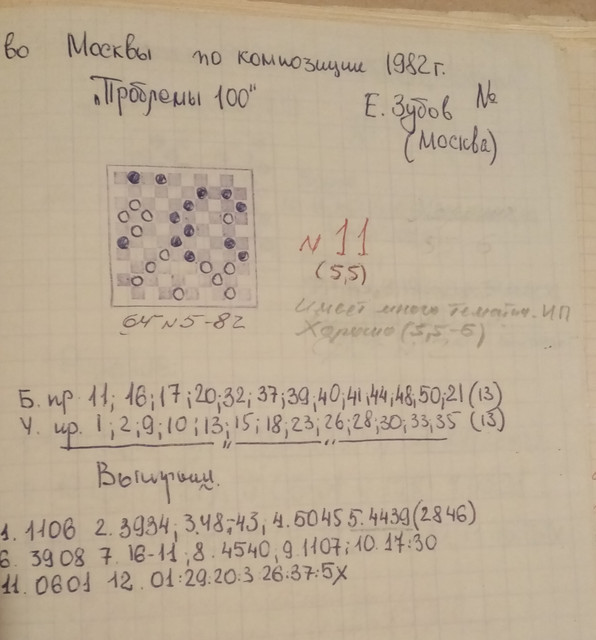 во Москвы по композиции 1982г.
„Проблемы 100"
Е. Зубов №
(Москва)
N 11
(5,5)
64 N5-82
Имеет много тематич. ИП
Хорошо (5,5-6)
Б. пр 11; 16; 17; 20; 32; 37; 39, 40; 41, 44, 48, 50; 21 (13)
Ч. пр. 1; 2; 9; 10; 13; 15; 18; 23; 26; 28; 30; 33, 35 (13)
Выигрыш.
1. 1106 2. 3934; 3.48-43, 4. 5045 5. 4439 (2846)
6. 3908 7. 16-11; 8. 4540, 9. 1107; 10. 17:30
11. 0601 12. 01:29.20:3 26:37:5X